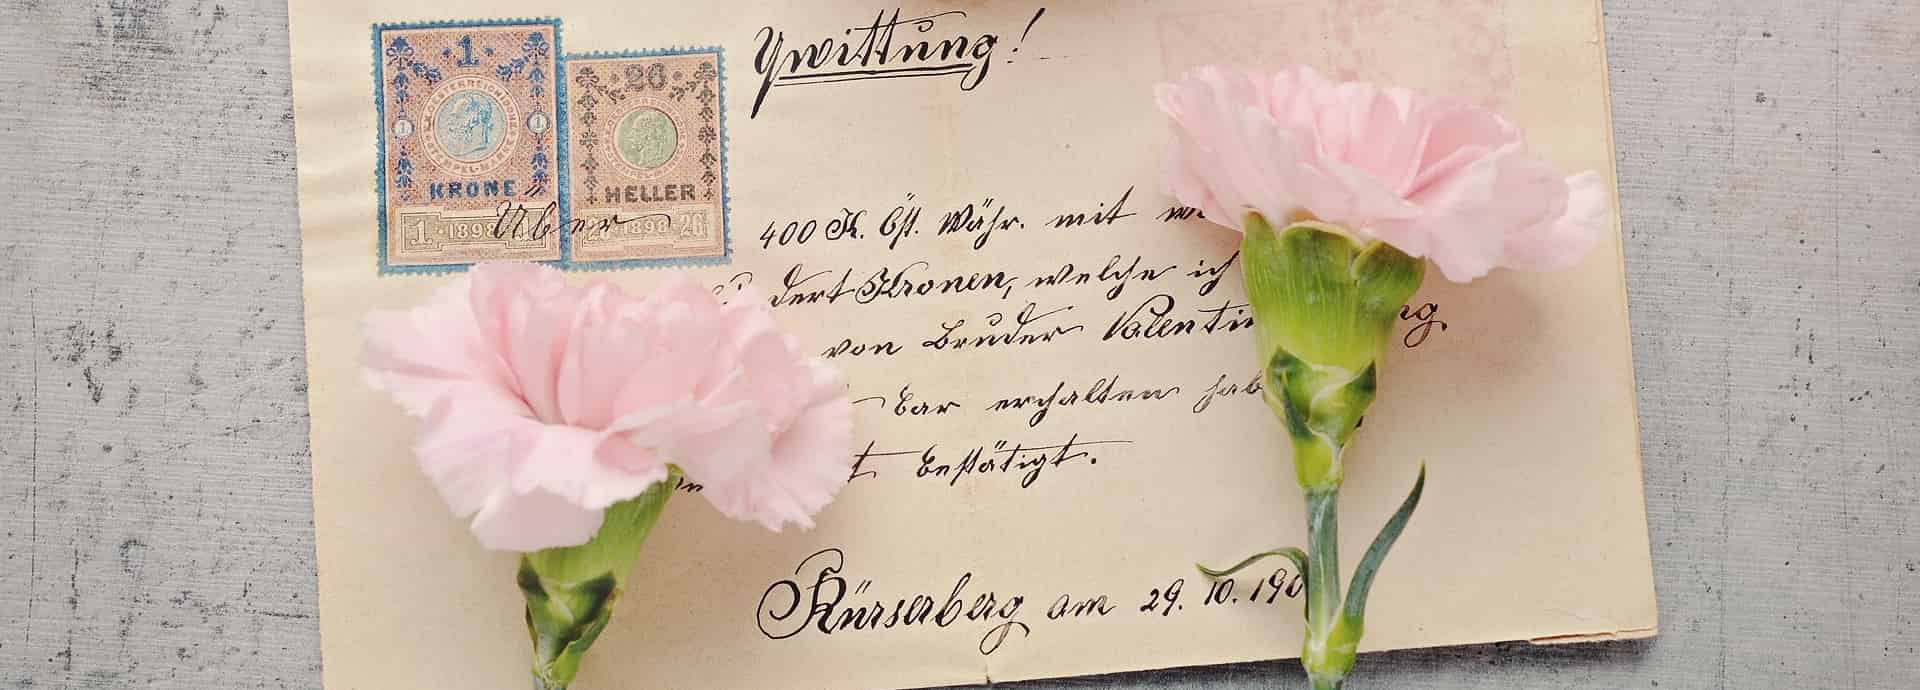 Qwittung!
1
KRONE
1 1
1 · 1898
26
HELLER
26 · 1898 · 26
Über
400 K. Öst. Währ. mit
dert Kronen, welche ich
von Bruder Valentin
bar erhalten hab
bestätigt.
Kürserberg am 29. 10. 190